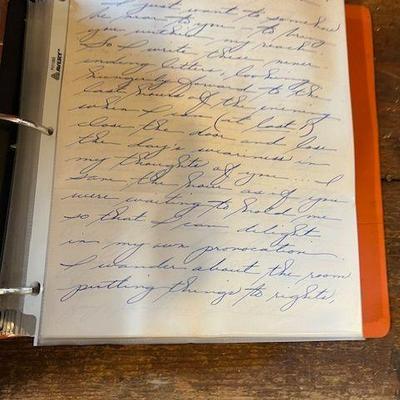 I just want to somehow
be near to you — to bring
you within my reach
So I write these never
ending letters, looking
hungrily forward to the
last hours of the evening
when I can (at last!)
close the door and lose
the day's weariness in
my thoughts of you... I
the hour as if you
were waiting to hold me
so that I can delight
in my own provocation.
I wander about the room
putting things to rights,
AVERY